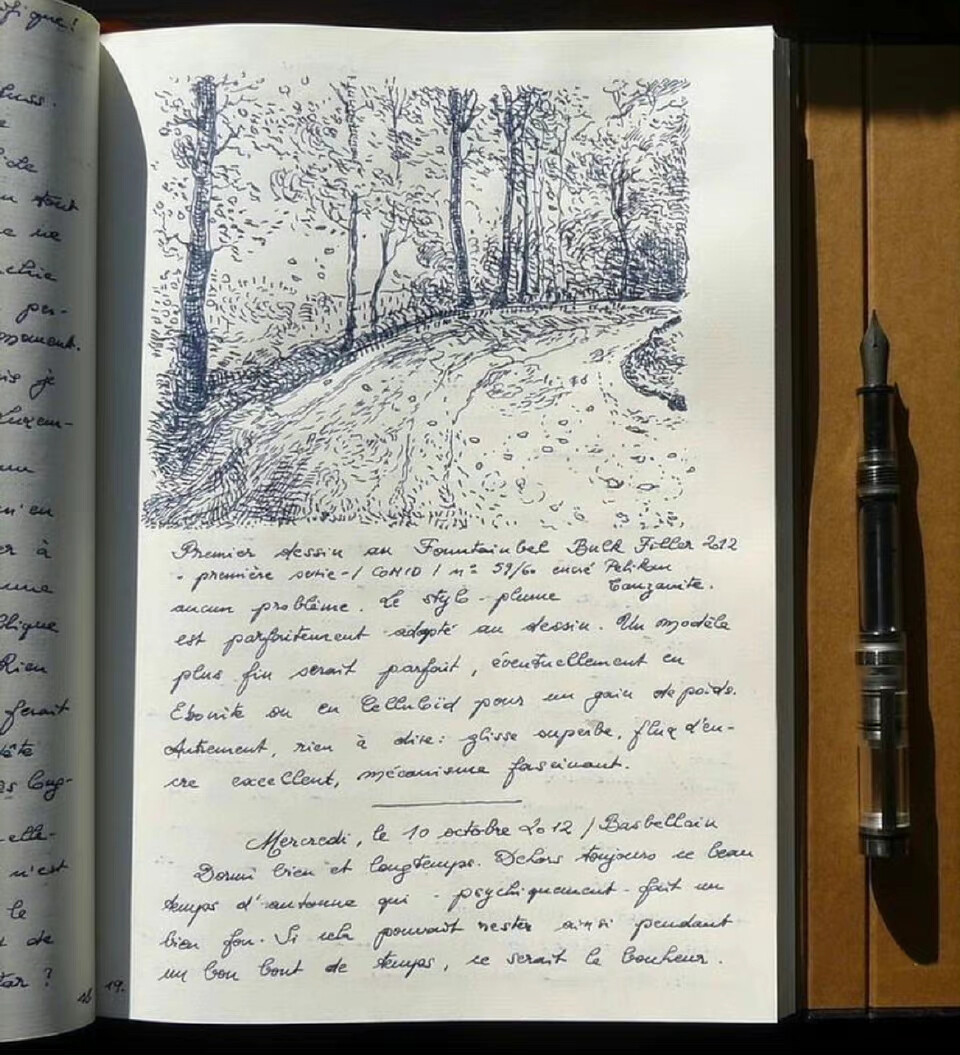 tout
ne
per-
moment.
je
Luxem-
n'en
à
Rien
ferait
long-
elle-
n'est
le
de
?
18
19.
Premier dessin au Fountainbel Bulk Filler 2012
- première série - / CONID / n° 59/60 encré Pelikan
Tanzanite.
aucun problème. Le stylo-plume
est parfaitement adapté au dessin. Un modèle
plus fin serait parfait, éventuellement en
Ebonite ou en Celluloïd pour un gain de poids.
Autrement, rien à dire: glisse superbe, flux d'en-
cre excellent, mécanisme fascinant.
Mercredi, le 10 octobre 2012 / Basbellain
Dormi bien et longtemps. Dehors toujours ce beau
temps d'automne qui - psychiquement - fait un
bien fou. Si cela pouvait rester ainsi pendant
un bon bout de temps, ce serait le bonheur.